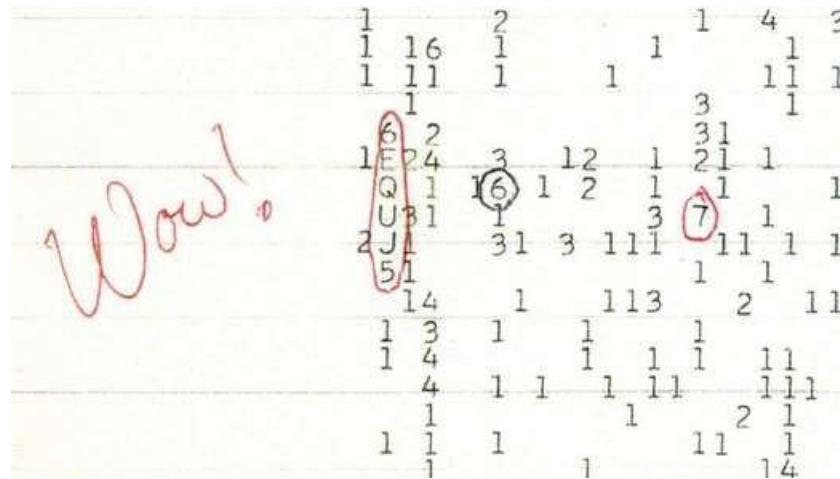 1 2 1 4 3
1 16 1 1 1
1 11 1 1 11 1
1 3 1
6 2 31
1E24 3 12 1 21 1
Wow! Q 1 16 1 2 1 1 1
U31 1 3 7 1
2J1 31 3 111 11 1 1
51 1 1
14 1 113 2 11
1 3 1 1 1
1 4 1 1 1 11
4 1 1 1 11 111
1 1 2 1
1 1 1 11 1
1 1 14